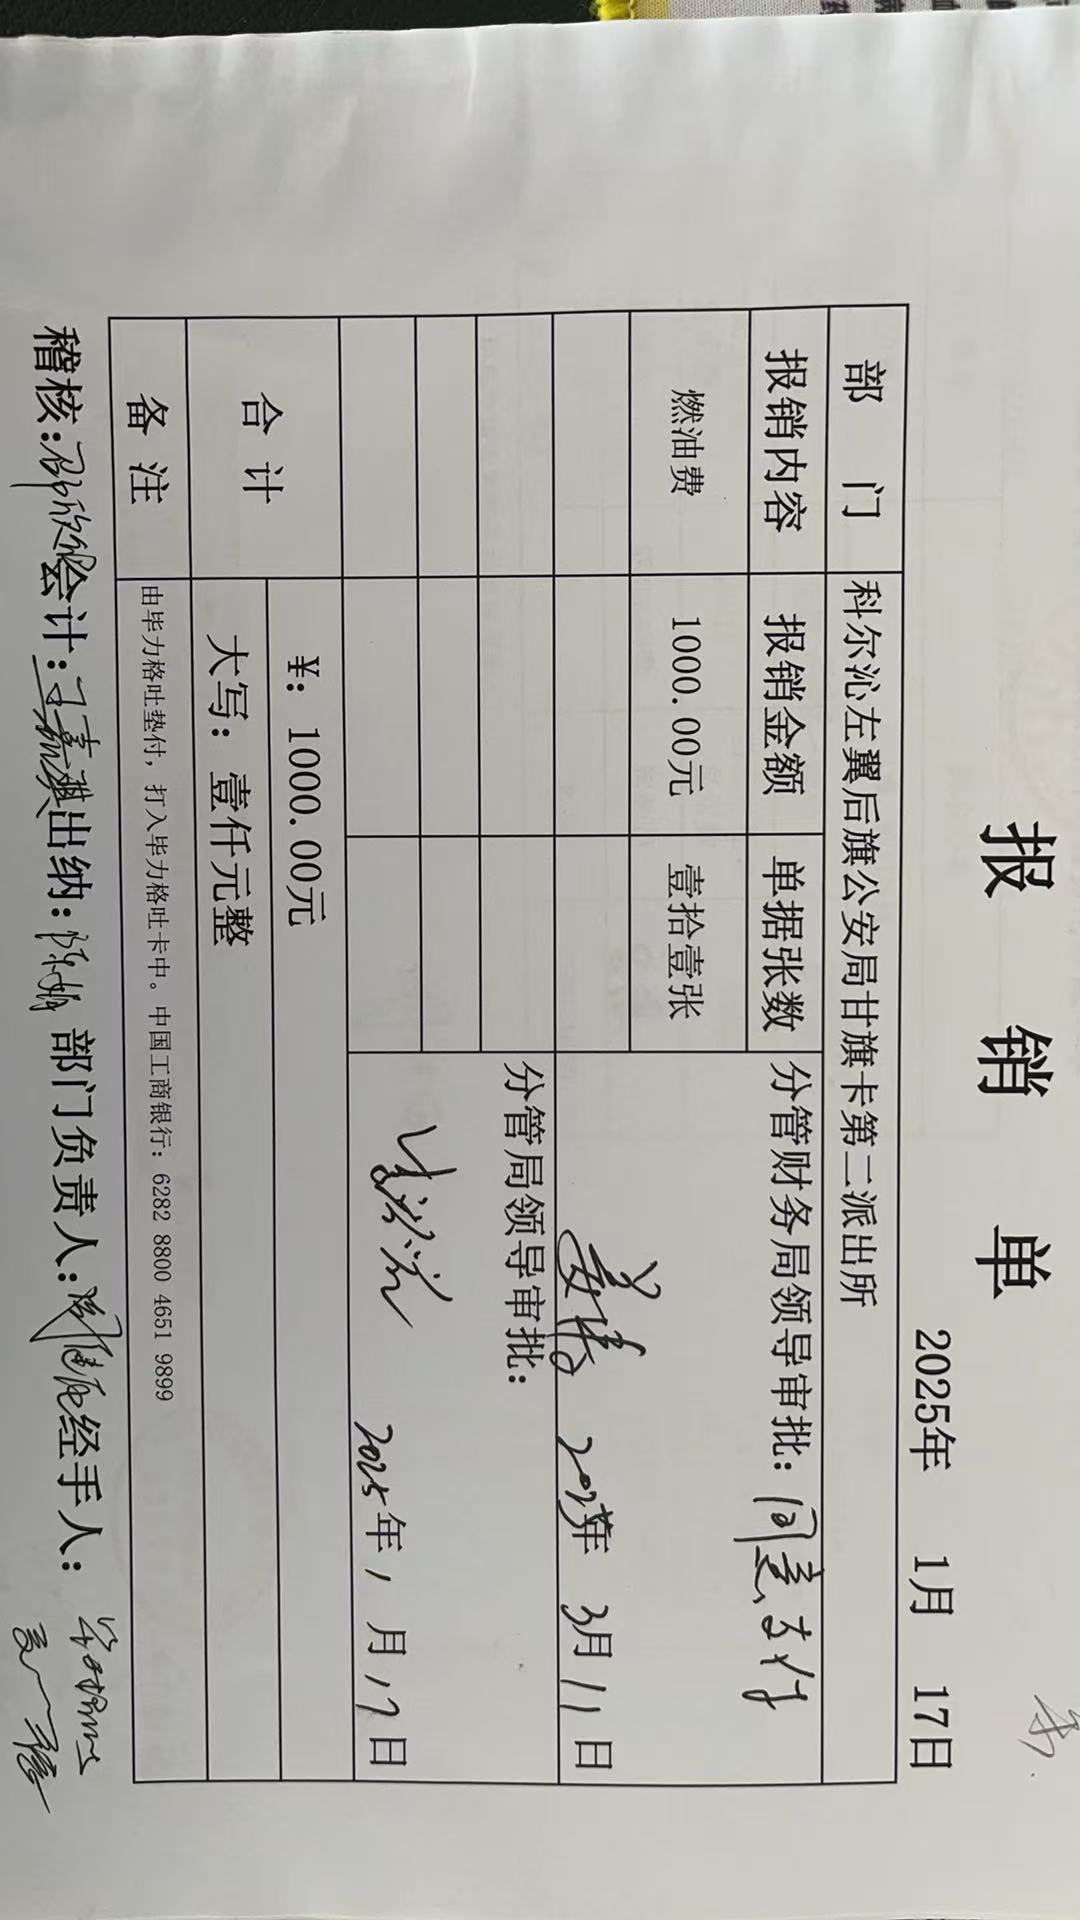 报 销 单
2025年 1月 17日
部 门 科尔沁左翼后旗公安局甘旗卡第二派出所
报销内容 报销金额 单据张数 分管财务局领导审批：同意支付
燃油费 1000.00元 壹拾壹张
2025年 3月 11日
分管局领导审批：
2025年 1月 17日
合 计 ¥：1000.00元
大写：壹仟元整
备 注 由毕力格吐垫付，打入毕力格吐卡中。中国工商银行：6282 8800 4651 9899
稽核： 会计： 出纳： 部门负责人： 经手人：